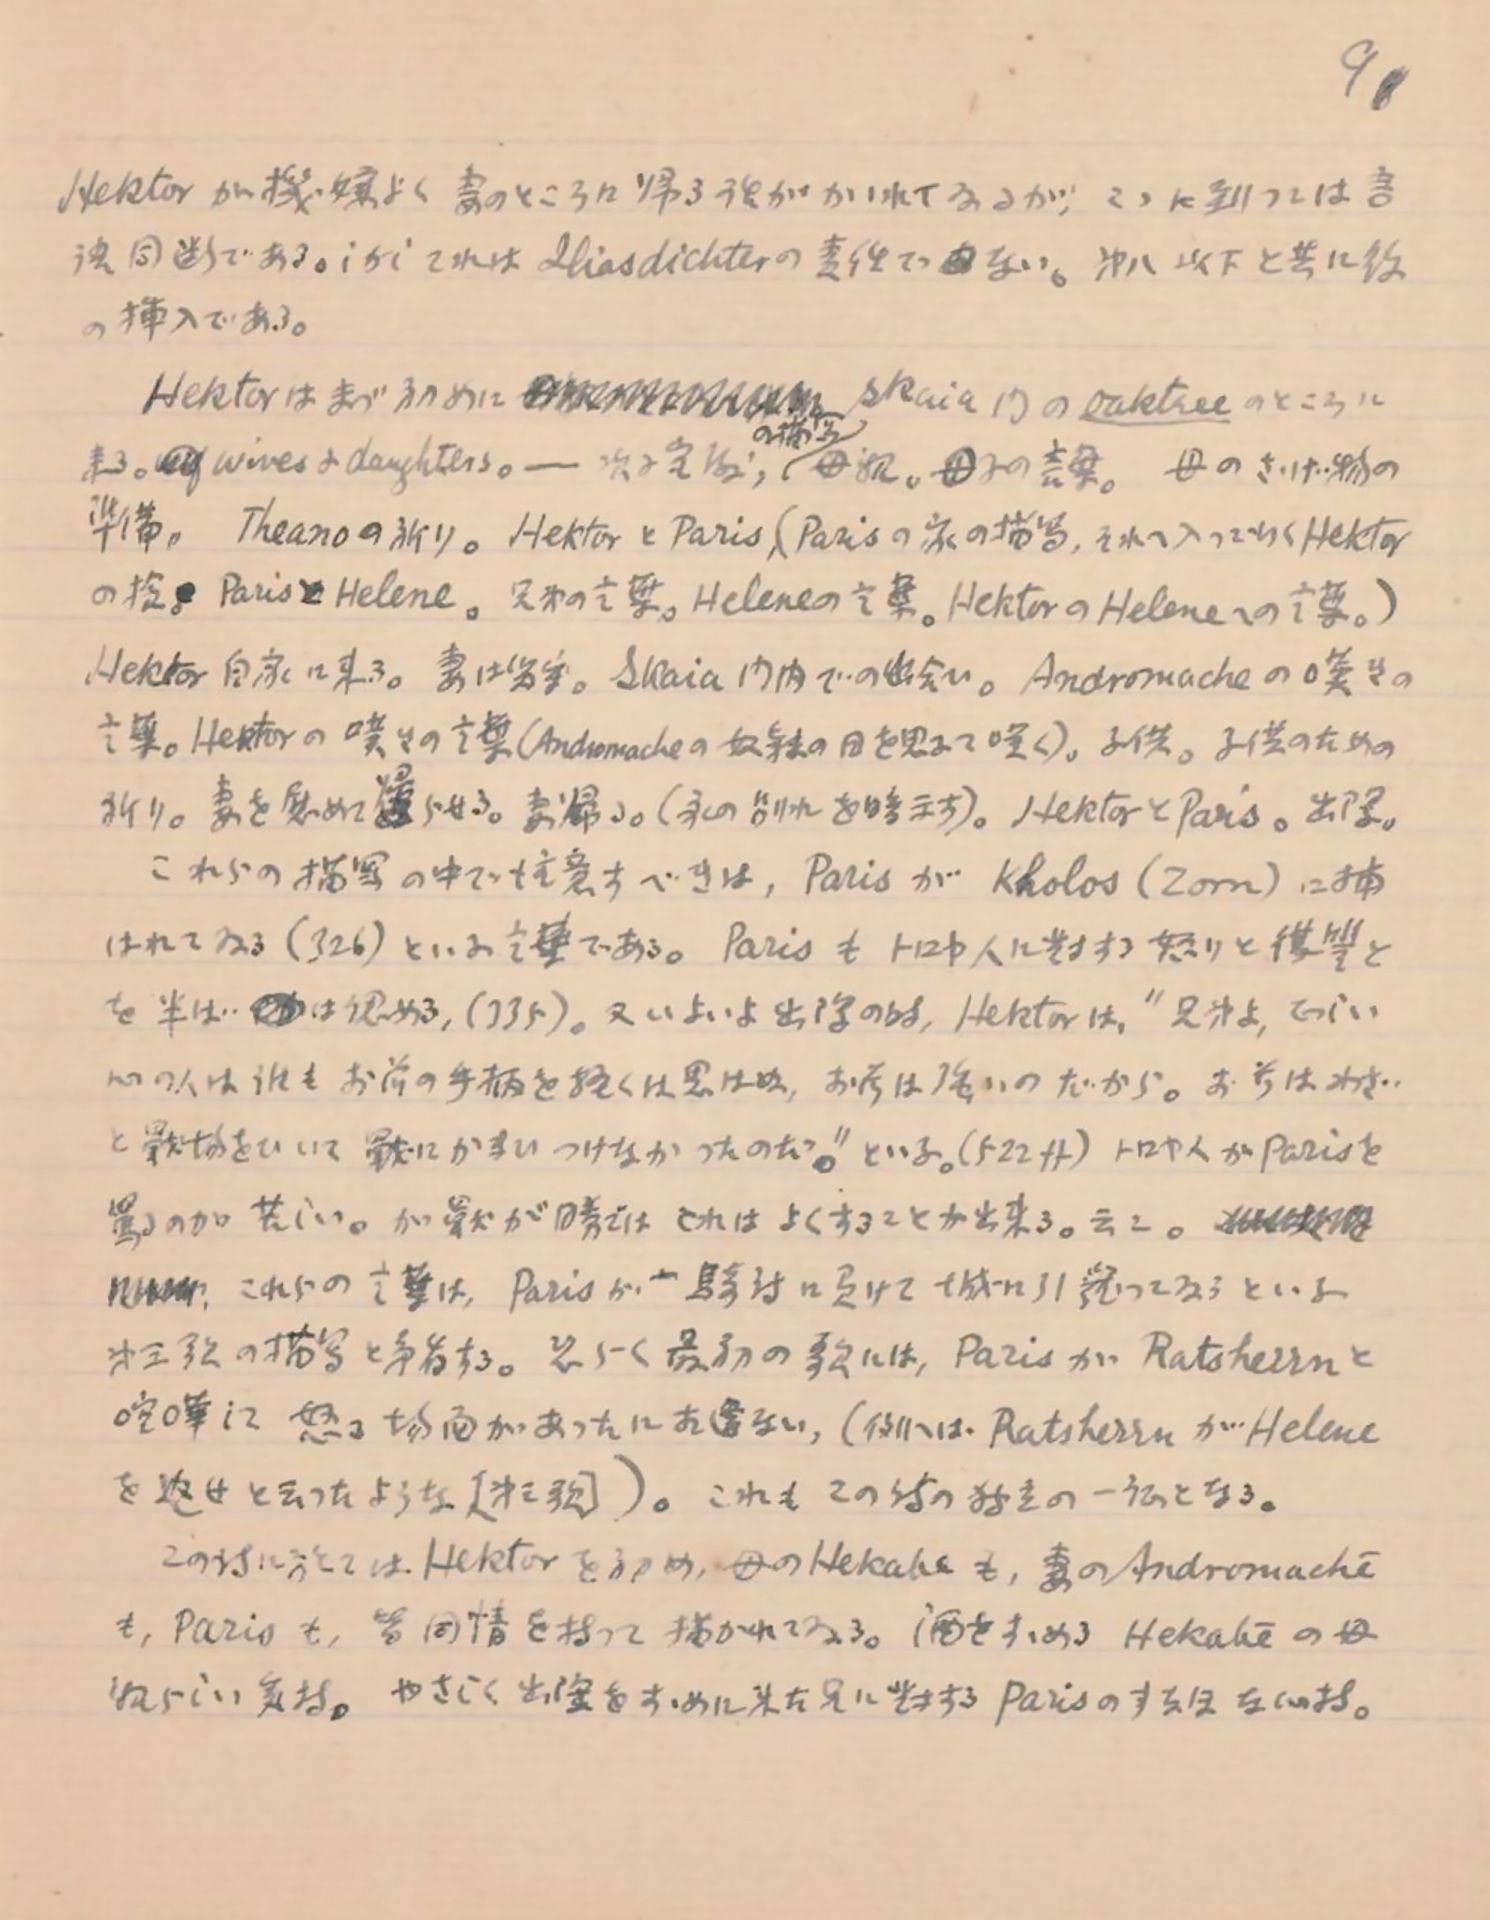 9
Hektor が機嫌よく妻のところに帰る後がかゝれてゐるが、こゝに到つては言
語同断である。しかしこれは Iliasdichterの責任でない。第八以下と共に後
の挿入である。
Hektorはまづ初めに Skaia 門の oaktree のところに
来る。wives & daughters。— 次に宮殿の描写、母親。母子の言葉。母のさゝげ物の
準備。 Theanoの祈り。Hektor と Paris (Parisの家の描写、それへ入つてゆくHektor
の槍。ParisとHelene。兄弟の言葉。Heleneの言葉。HektorのHeleneへの言葉。)
Hektor自家に来る。妻は留守。Skaia門内での出会ひ。Andromacheの嘆きの
言葉。Hektorの嘆きの言葉(Andromacheの奴隷の日を思ふて嘆く)。子供。子供のための
祈り。妻を慰めて帰らせる。妻帰る。(永の別れを暗示す)。HektorとParis。出陣。
これらの描写の中で注意すべきは、Paris が Kholos (Zorn) に捕
はれてゐる (326) といふ言葉である。Paris も トロヤ人に対する怒りと復讐と
を半ばは認める、(335)。又いよいよ出陣の時、Hektorは、"兄弟よ、正しい
心の人は誰もお前の手柄を軽くは思はぬ、お前は強いのだから。お前はわざ
と戦場をひいて戦にかまひつけなかつたのだ。"といふ。(522ff) トロヤ人がParisを
罵るのが苦しい。が戦が勝てばそれはよくすることが出来る。云々。
これらの言葉は、Parisが一騎討に負けて城に引籠つてゐるといふ
第三歌の描写と矛盾する。恐らく最初の歌には、Paris が Ratsherrnと
喧嘩して怒る場面があつたに相違ない、(例へば Ratsherrn が Helene
を返せと云つたような[第三歌])。これもこの詩の独立の一証となる。
この詩に於ては Hektor を初め、母のHekabē も、妻のAndromachē
も、Paris も、皆同情を持つて描かれてゐる。酒をすゝめる Hekabē の母
親らしい気持。やさしく出陣をすゝめに来た兄に対する Parisのすなほな心持。